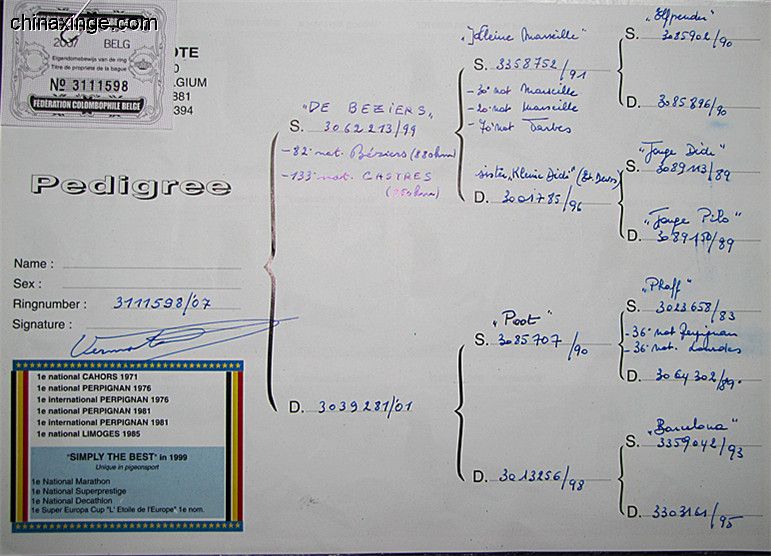 chinaxinge.com
2007 BELG
Eigendomsbewijs van de ring
Titre de propriete de la bague
Nº 3111598
FEDERATION COLOMBOPHILE BELGE
OTE
0
LGIUM
881
394
Pedigree
Name :
Sex :
Ringnumber : 3111598/07
Signature :
1e national CAHORS 1971
1e national PERPIGNAN 1976
1e international PERPIGNAN 1976
1e national PERPIGNAN 1981
1e international PERPIGNAN 1981
1e national LIMOGES 1985
"SIMPLY THE BEST" in 1999
Unique in pigeonsport
1e National Marathon
1e National Superprestige
1e National Decathlon
1e Super Europa Cup "L' Etoile de l'Europe" 1e nom.
"DE BEZIERS"
S. 3062213/99
-82° nat. Béziers (880km)
-133° nat. CASTRES
D. 3039281/01
"Kleine Marseille"
S. 3358752/91
- 30° nat Marseille
- 20° nat Marseille
- 70° nat Tarbes
sister "Kleine Didi"
D. 3001785/96
"Poot"
S. 3085707/90
D. 3013256/98
S. 3085902/90
D. 3085896/90
"Jonge Didi"
S. 3089113/89
"Jonge Pilo"
D. 3089150/89
"Phaff"
S. 3023658/83
- 36° nat Perpignan
- 36° nat. Lourdes
D. 3064302/89
"Barcelona"
S. 3359042/93
D. 3303161/95